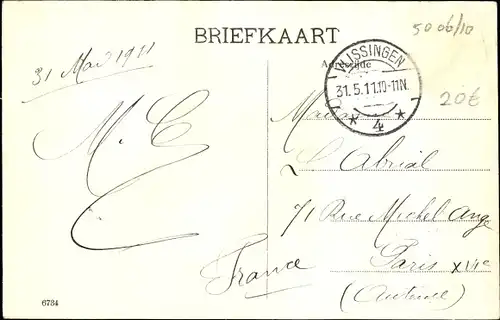 50 06/10
BRIEFKAART
31 Mai 1911
Adreszijde
VLISSINGEN
31.5.11.10-11N.
* 4 *
20€
M. C
L. Abrial
71 Rue Michel Ange
Paris XVIe
France
(Auteuil)
6734